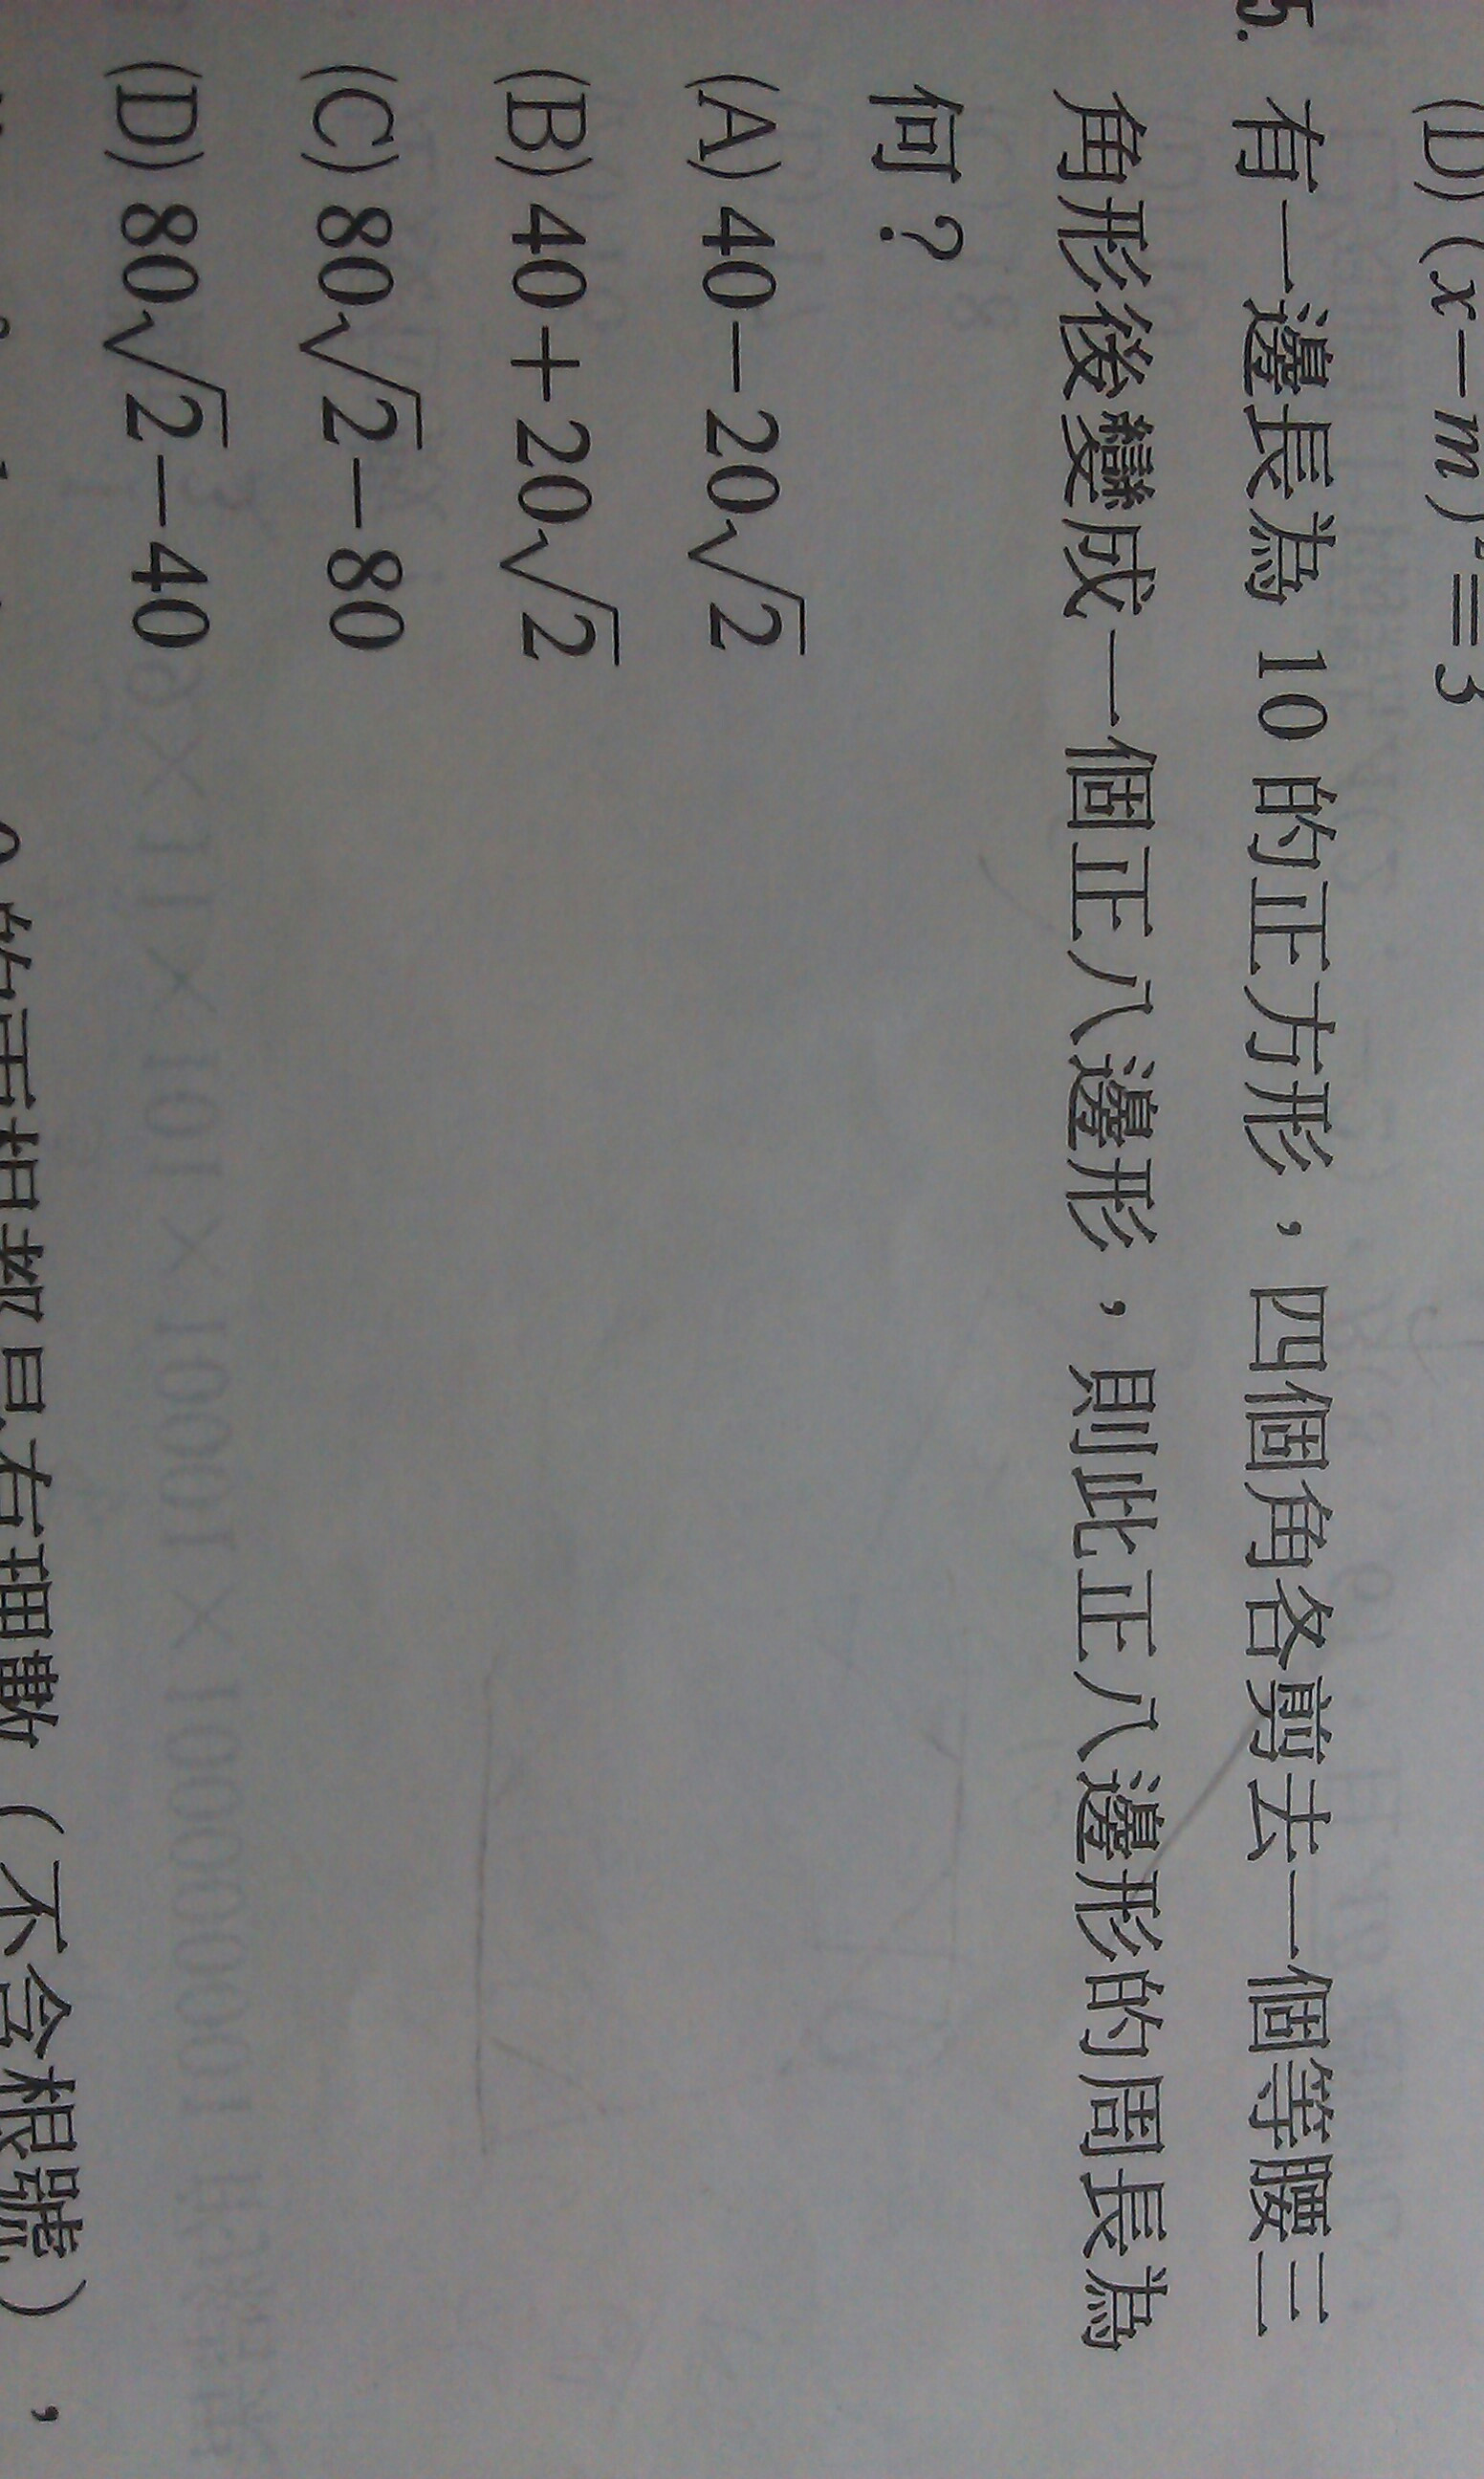 (D) (x−m)²=3
5. 有一邊長為 10 的正方形，四個角各剪去一個等腰三
角形後變成一個正八邊形，則此正八邊形的周長為
何？
(A) 40−20√2
(B) 40+20√2
(C) 80√2−80
(D) 80√2−40
的兩根都是有理數（不含根號），